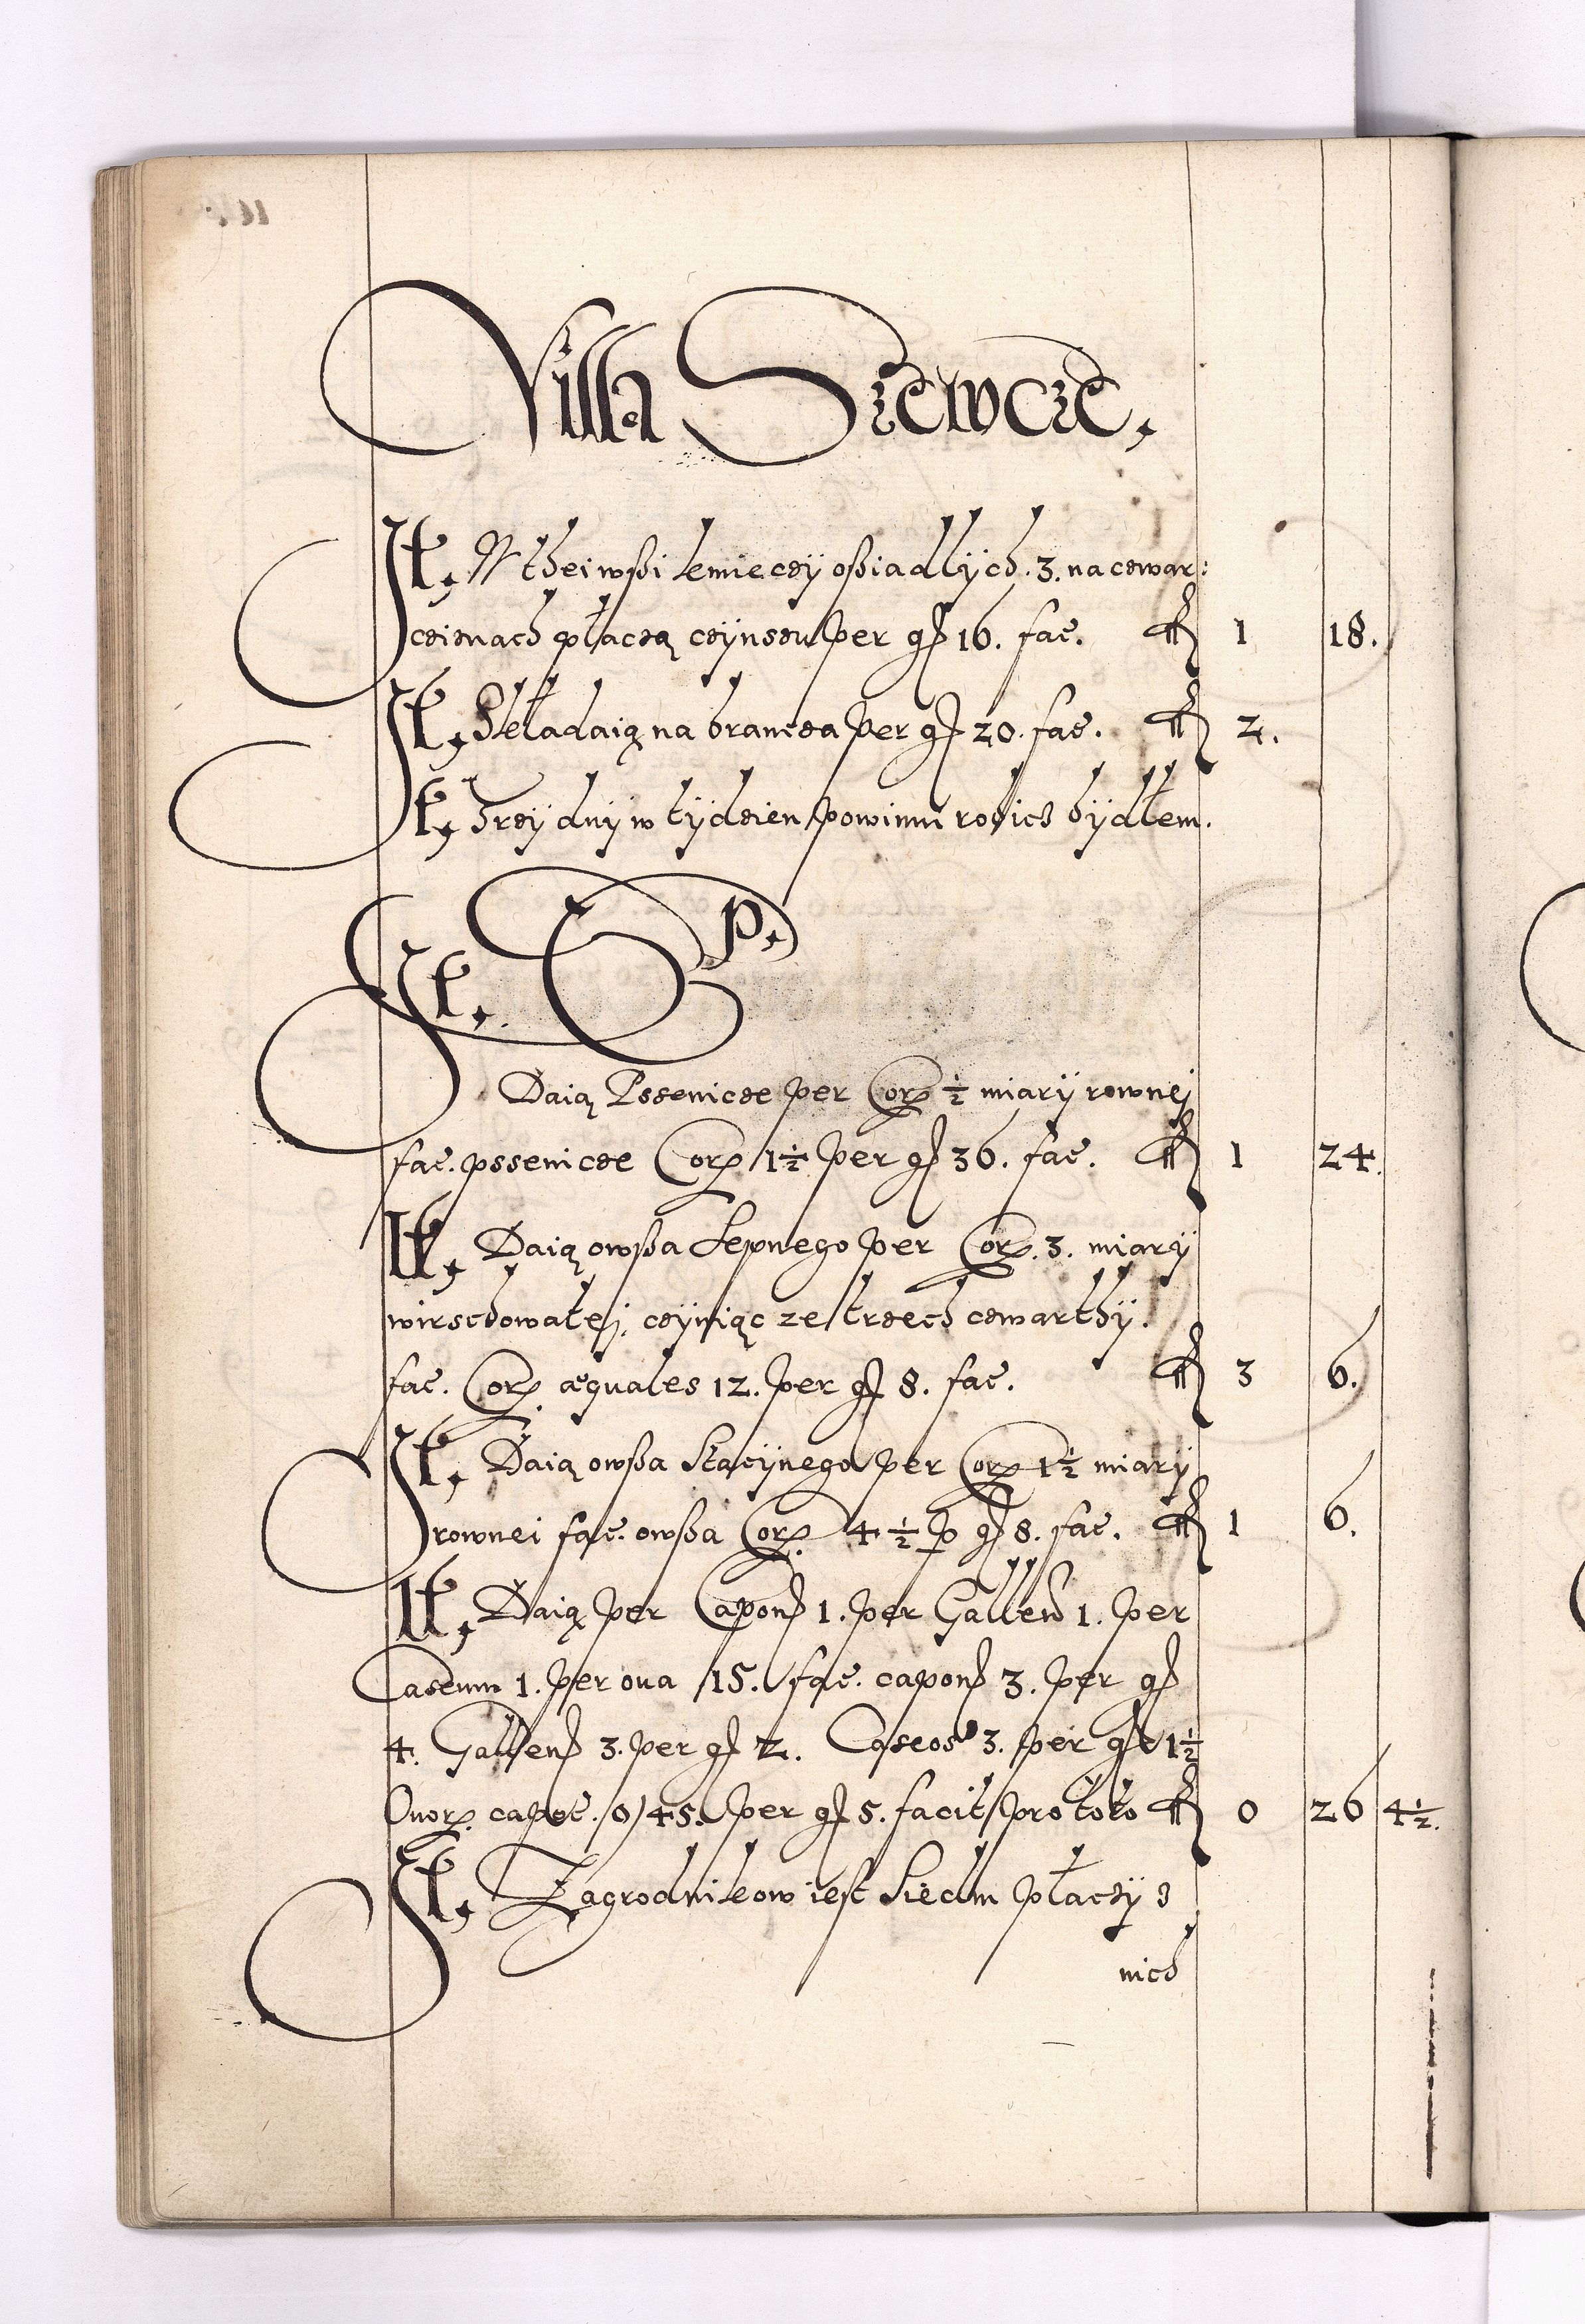 Villa Siewcze,
It, W they wssi kmieczy ossiadlych. 3. na czwar:
czinach płaczą czynszu per gr 16. fac. fl 1 18.
It, Składaią na barancza per gr 20. fac. fl 2.
It, Trzy dny w tydzien powinni robicz bydłem.
It. Sp,
Daią Pssenicze per Cor. ½ miary rownej
fac. pssenicze Cor. 1½ per gr 36. fac. fl 1 24.
It, Daią owssa Sepnego per Cor. 3. miary
wirschowatej, czyniąc ze trzech czwarthy.
fac. Cor. æquales 12. per gr 8. fac. fl 3 6.
It, Daią owssa Stacyjnego per Cor. 1½ miary
rownei fac. owssa Cor. 4½ p gr 8. fac. fl 1 6.
It, Daią per Capon 1. per Gallen 1. per
Caseum 1. per oua 15. fac. capon 3. per gr
4. Gallen 3. per gr 2. Caseos 3. per gr 1½
Ouor. 45. per gr 5. facit pro toto fl 0 26 4½.
It, Zagrodnikow iest Siedm płaczy z
nich